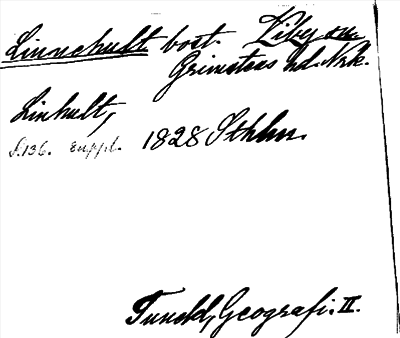 Linnehult bost. Viby sn.
Grimstens hd. Nrk.
Linhult,
s. 136. suppl. 1828 Sthlm.
Tuneld, Geografi. II.